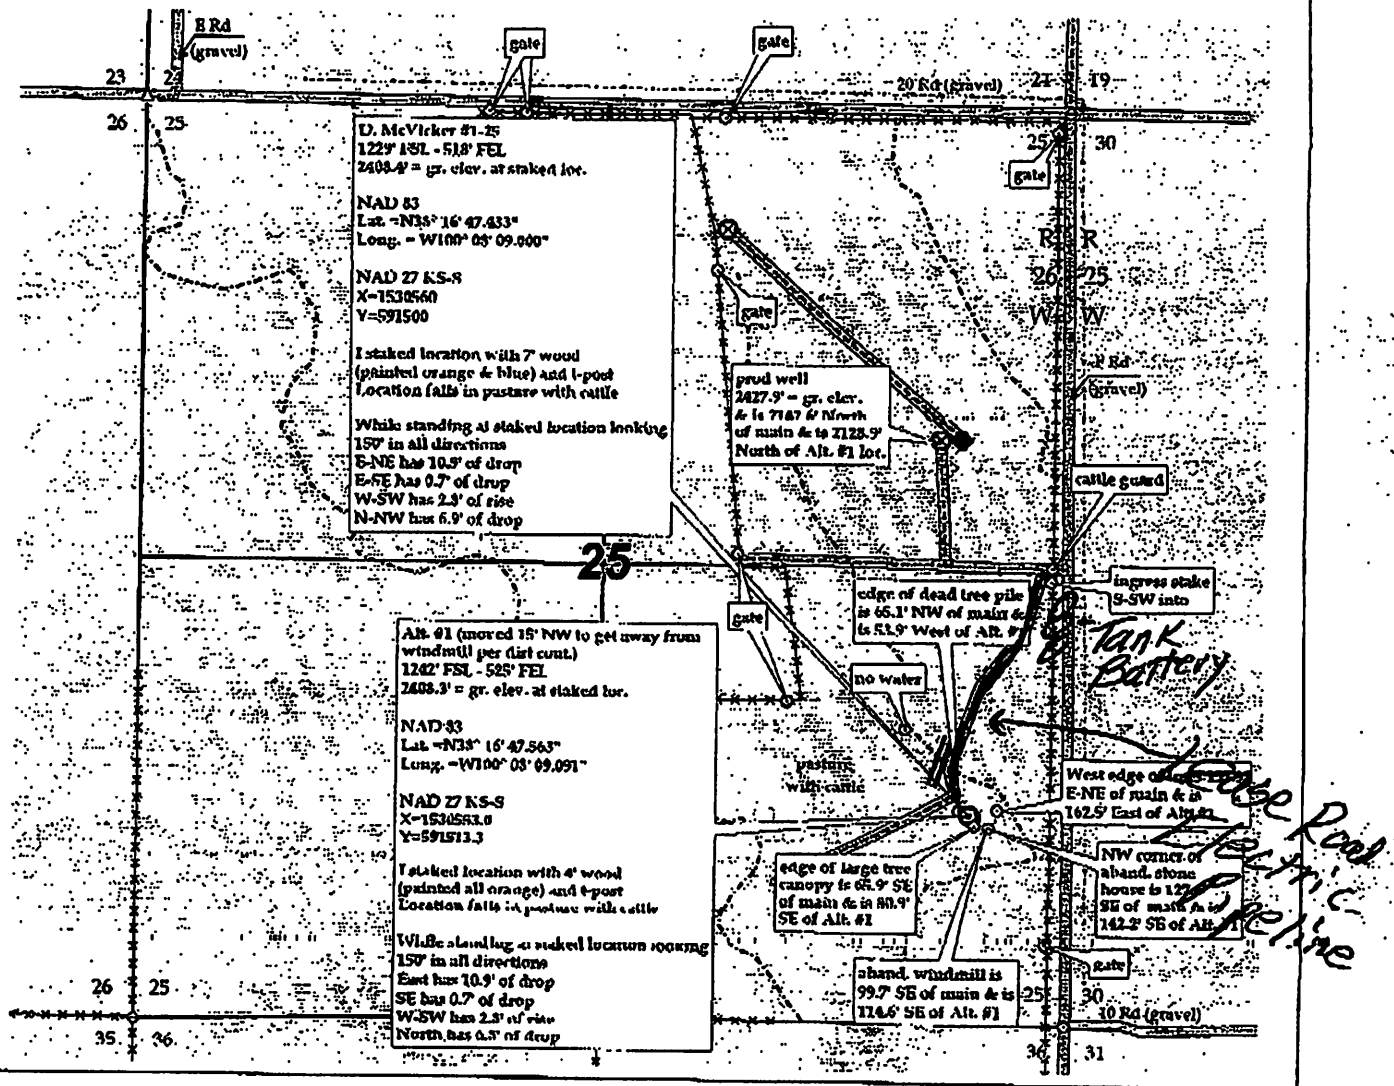 E Rd
(gravel)
gate
gate
23
24
20 Rd (gravel)
19
26
25
25
30
gate
D. McVicker #1-25
1229' FSL - 518' FEL
2408.4' = gr. elev. at staked loc.
NAD 83
Lat. =N38° 16' 47.433"
Long. = W100° 08' 09.000"
NAD 27 KS-S
X=1530560
Y=591500
I staked location with 7' wood
(painted orange & blue) and t-post
Location falls in pasture with cattle
While standing at staked location looking
150' in all directions
E-NE has 10.9' of drop
E-SE has 0.7' of drop
W-SW has 2.8' of rise
N-NW has 6.9' of drop
R
R
26
25
W
W
gate
F Rd
(gravel)
prod well
2427.9' = gr. elev.
& is North
of main & is 2128.9'
North of Alt. #1 loc.
cattle guard
25
ingress stake
S-SW into
edge of dead tree pile
is 65.1' NW of main &
is 53.9' West of Alt. #1
gate
Tank
Battery
no water
Alt. #1 (moved 15' NW to get away from
windmill per dirt cont.)
1242' FSL - 525' FEL
2408.3' = gr. elev. at staked loc.
NAD 83
Lat. =N38° 16' 47.563"
Long. =W100° 08' 09.091"
NAD 27 KS-S
X=1530553.0
Y=591513.3
I staked location with 4' wood
(painted all orange) and t-post
Location falls in pasture with cattle
While standing at staked location looking
150' in all directions
East has 10.9' of drop
SE has 0.7' of drop
W-SW has 2.8' of rise
North has of drop
pasture
with cattle
West edge of
E-NE of main & is
162.5' East of Alt. #1
Lease Road
Electric
Pipeline
edge of large tree
canopy is 65.9' SE
of main & is 80.9'
SE of Alt. #1
NW corner of
aband. stone
house is
SE of main & is
142.2' SE of Alt. #1
gate
aband. windmill is
99.7' SE of main & is
114.6' SE of Alt. #1
26
25
25
30
10 Rd (gravel)
35
36
36
31